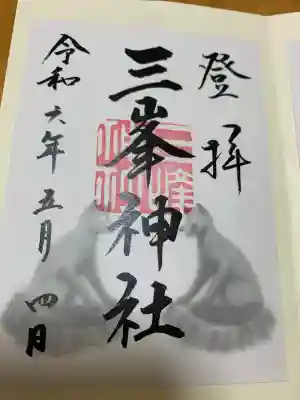 登拝
三峯神社
令和六年五月四日